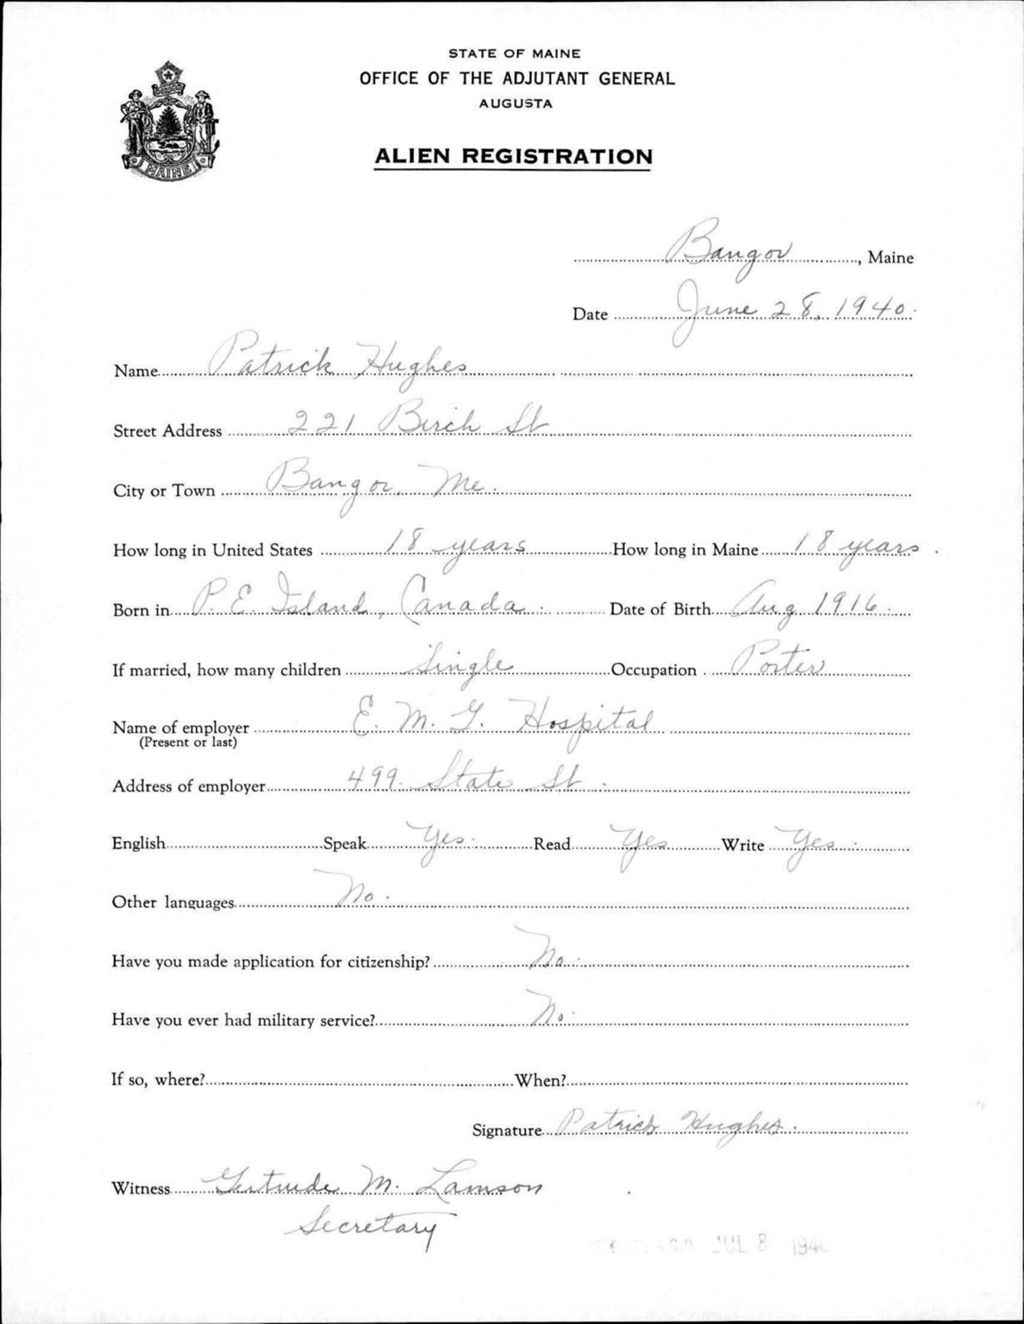 STATE OF MAINE
OFFICE OF THE ADJUTANT GENERAL
AUGUSTA
ALIEN REGISTRATION
MAINE
Bangor, Maine
Date June 28, 1940.
Name Patrick Hughes
Street Address 221 Birch St
City or Town Bangor, Me.
How long in United States 18 years How long in Maine 18 years.
Born in P. E. Island, Canada. Date of Birth Aug 1916.
If married, how many children Single Occupation Porter
Name of employer E. M. G. Hospital
(Present or last)
Address of employer 499 State St.
English Speak Yes. Read Yes Write Yes.
Other languages No.
Have you made application for citizenship? No.
Have you ever had military service? No.
If so, where? When?
Signature Patrick Hughes.
Witness Gertrude M. Lamson
Secretary
JUL 8 1940